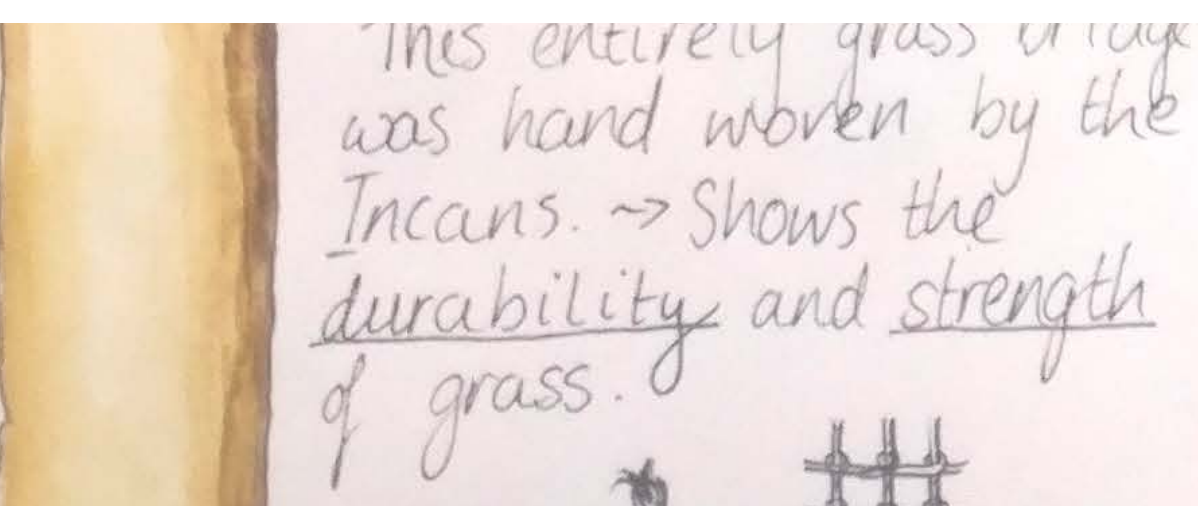 This entirely grass bridge
was hand woven by the
Incans. ~> Shows the
durability and strength
of grass.